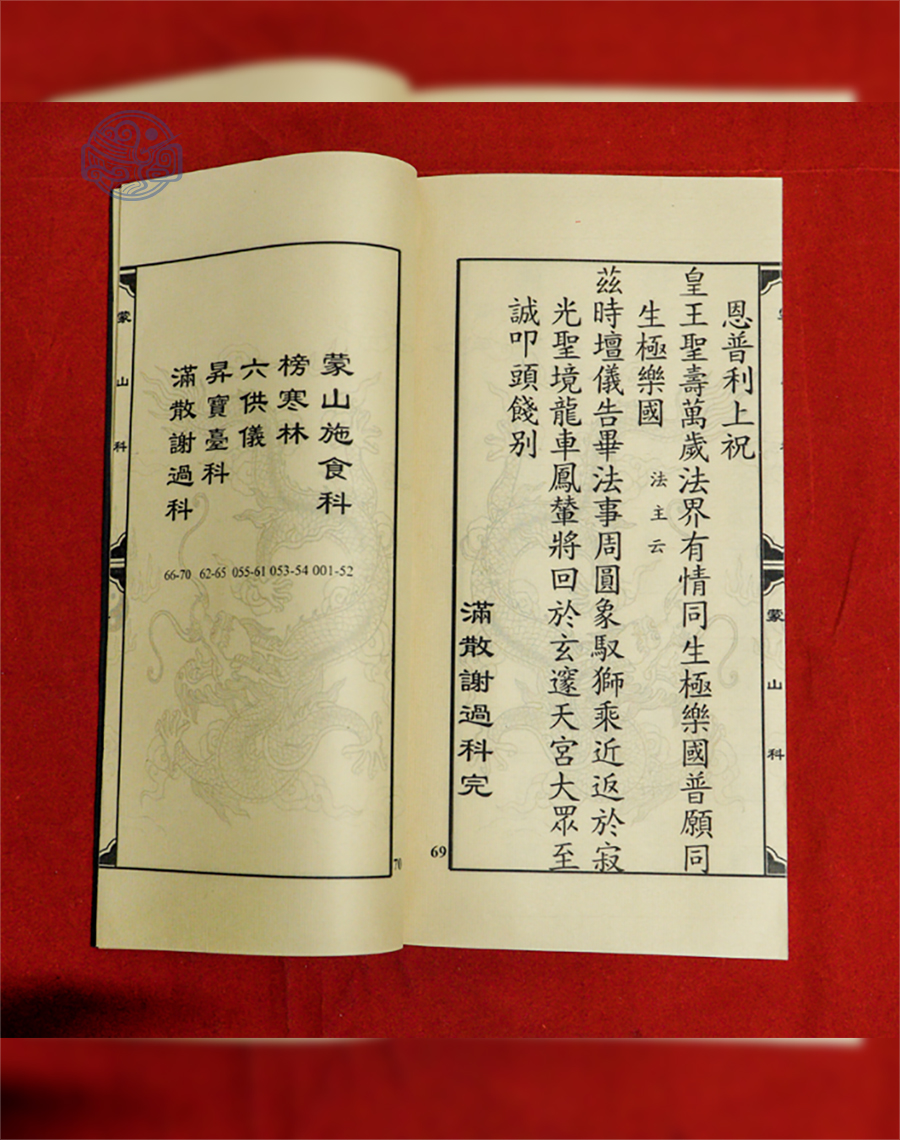 恩普利上祝
皇王聖壽萬歲法界有情同生極樂國普願同
生極樂國 法主云
茲時壇儀告畢法事周圓象馭獅乘近返於寂
光聖境龍車鳳輦將回於玄邃天宮大眾至
誠叩頭餞別
滿散謝過科完
69
蒙山科
蒙山施食科
榜寒林
六供儀
昇寶臺科
滿散謝過科
001-52
053-54
055-61
62-65
66-70
70
蒙山科